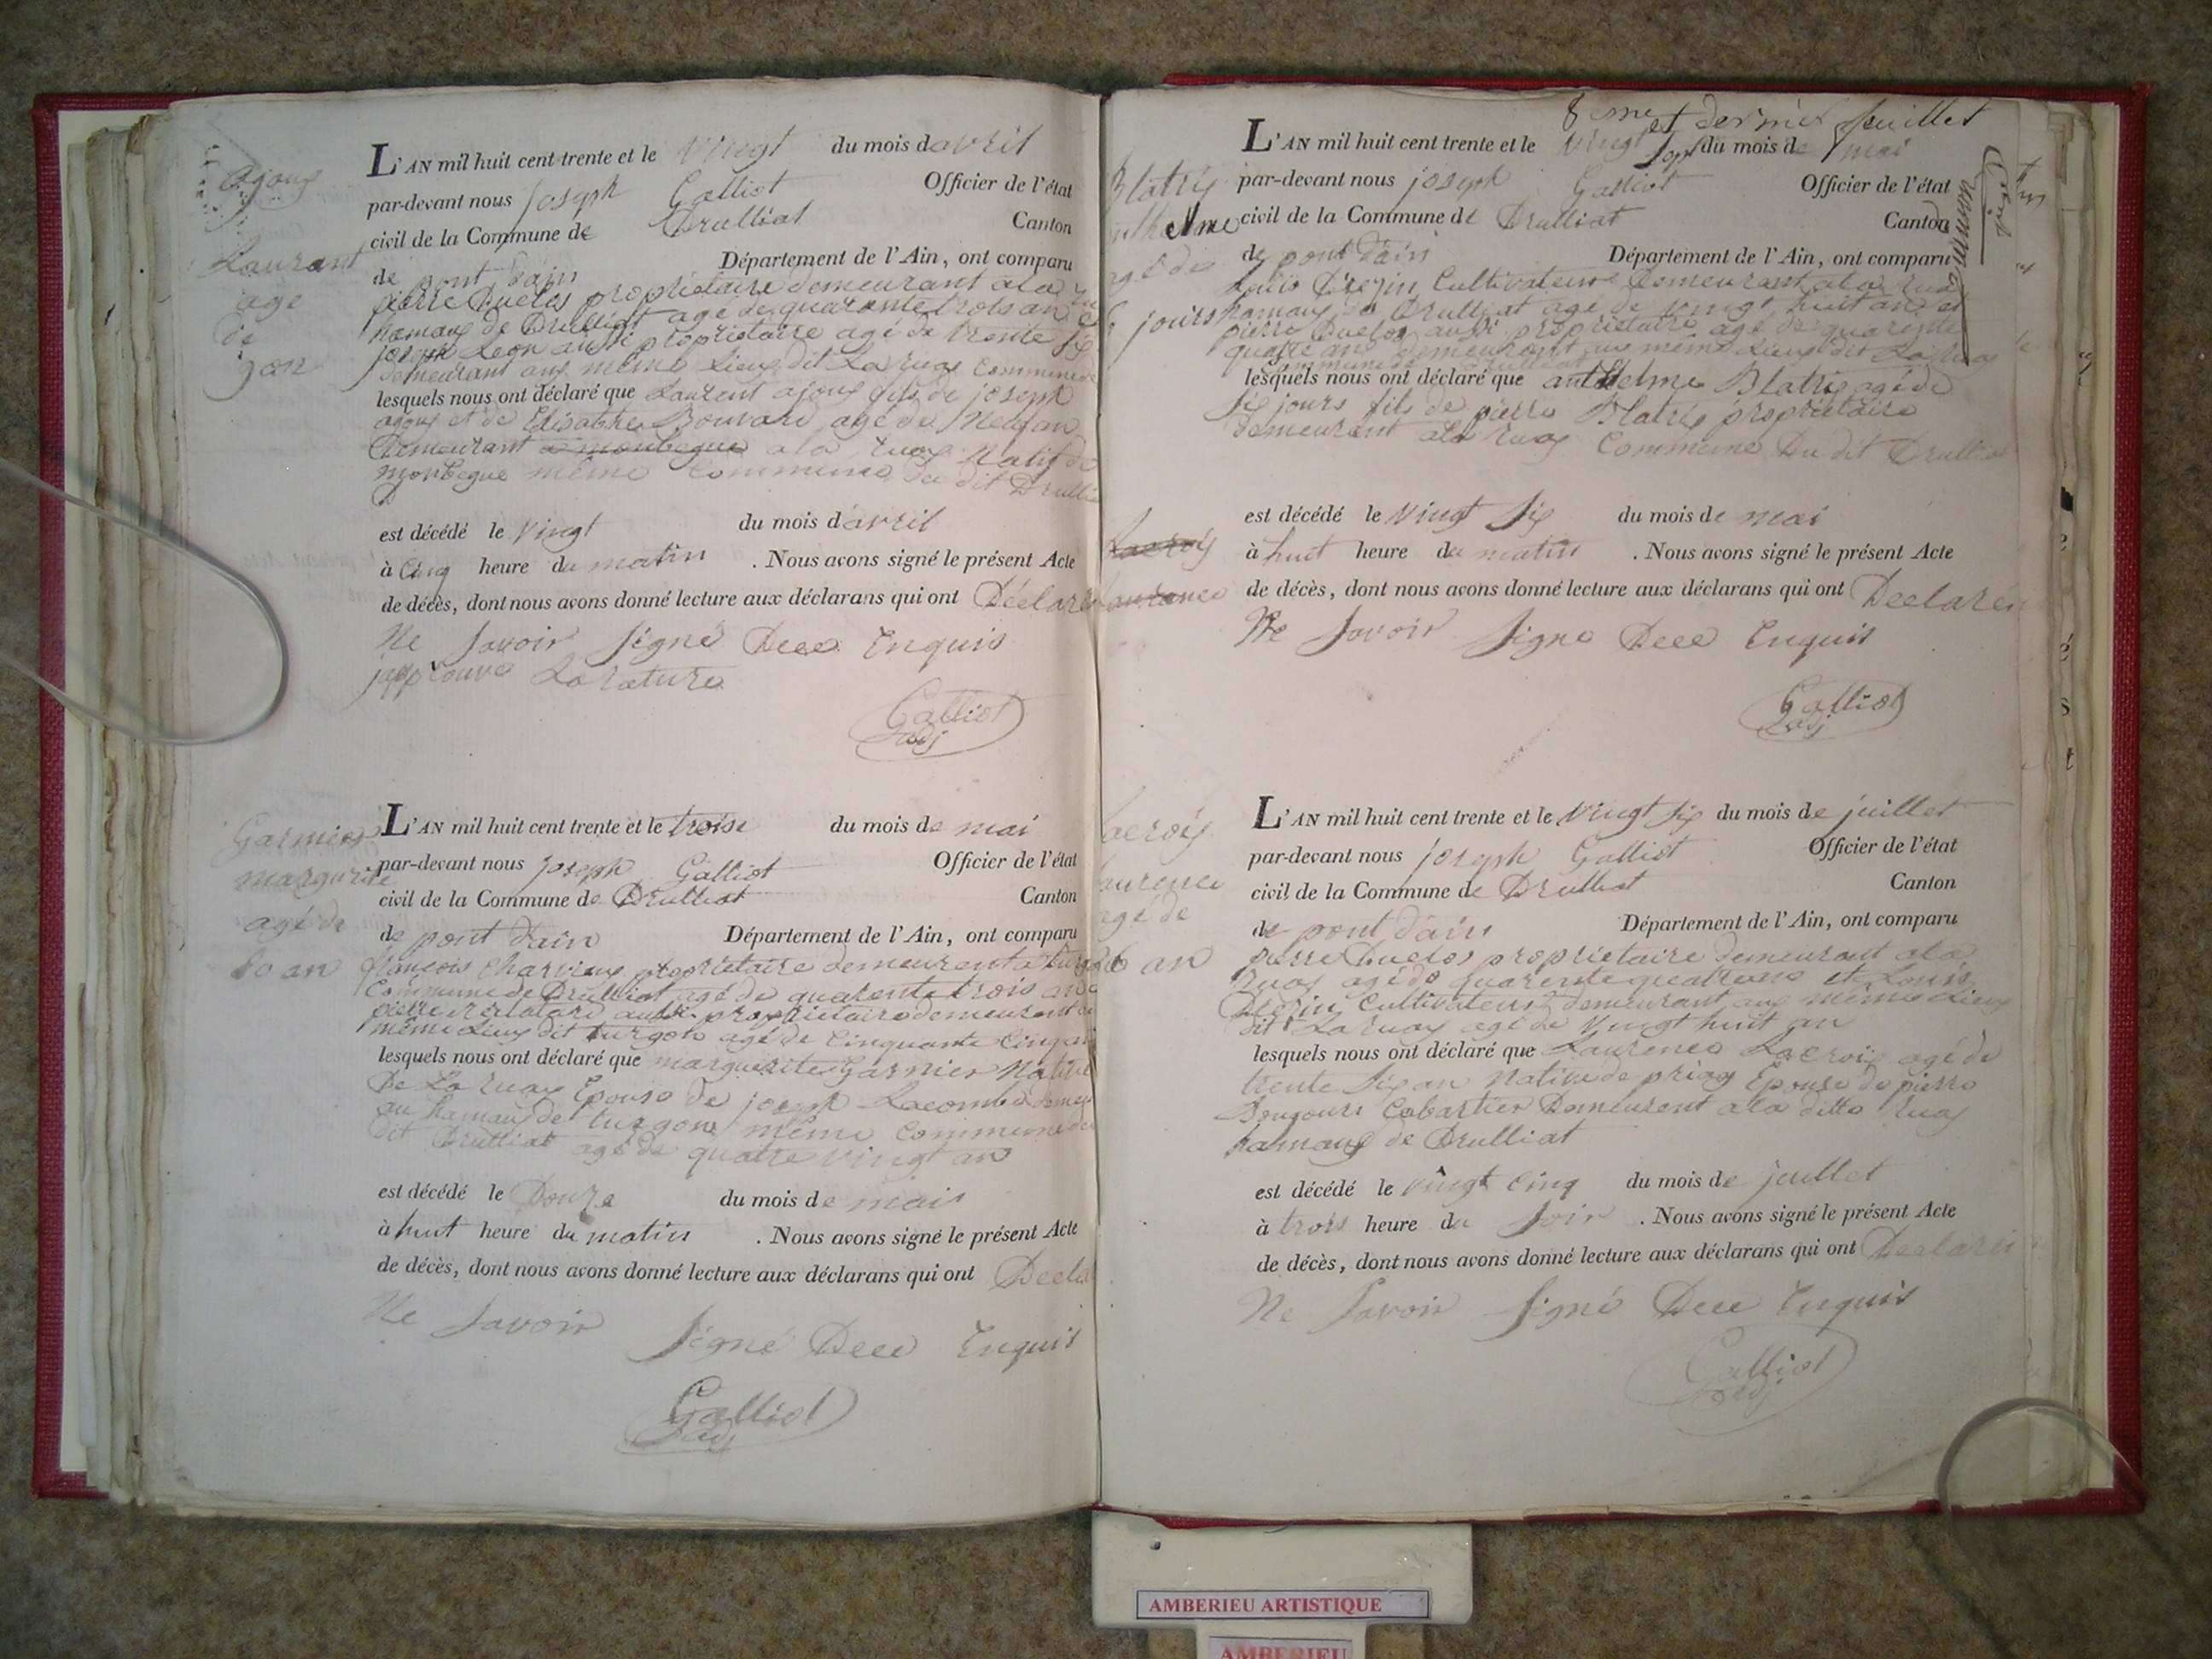 Laurant
age
de
9 an
L'AN mil huit cent trente et le vingt du mois d avril
par-devant nous joseph Galliot Officier de l'état
civil de la Commune de Drulliat Canton
de pont Dain Département de l'Ain, ont comparu
pierre Duclos propriétaire demeurant a la
hamaux de Drulliat agé de quarante trois an
joseph Leon aussi propriétaire agé de trente six
demeurant aux même Lieux dit La ruax commune
lesquels nous ont déclaré que Laurent ajoux fils de joseph
ajoux et de Elisabthe Bouvard agé de Neuf an
Demeurant a monbegue a la ruax Natif de
monbegue même Commune du dit Drullia
est décédé le vingt du mois d avril
à cinq heure du matin . Nous avons signé le présent Acte
de décès, dont nous avons donné lecture aux déclarans qui ont Déclare
Ne savoir signé Dece Enquis
japprouve La rature
Galliot
adj
Garnier
margurite
agé de
80 an
L'AN mil huit cent trente et le troise du mois de mai
par-devant nous joseph Galliot Officier de l'état
civil de la Commune de Drulliat Canton
de pont Dain Département de l'Ain, ont comparu
françois Charvieux propriétaire demeurent a turgon
Commune de Drulliat agé de quarente trois an
pierre aussi propriétaire demeurent
même Lieux dit turgon agé de Cinquante Cinq an
lesquels nous ont déclaré que marguerite Garnier Native
De La ruax Epouse de joseph Lacombe
au hamaux de turgon même Commune du
dit Drulliat agé de quatre vingt an
est décédé le Douze du mois de mais
à huit heure du matin . Nous avons signé le présent Acte
de décès, dont nous avons donné lecture aux déclarans qui ont Decla
Ne savoir signé Dece Enquis
Galliot
adj
8 eme et dernier feuillet
Blatrix
nthelme
agé de
6 jours
L'AN mil huit cent trente et le vingt sept du mois de mai
par-devant nous joseph Galliot Officier de l'état
civil de la Commune de Drulliat Canton
de pont Dain Département de l'Ain, ont comparu
Louis Cultivateur Demeurant a la ruax
hamaux de Drulliat agé de vingt huit an et
pierre Duclos aussi propriétaire agé de quarente
quatre an demeurent aux même Lieux dit La ruax
lesquels nous ont déclaré que anthelme Blatrix agé de
six jours fils de pierre Blatrix propriétaire
demeurant a la ruax Commune Du dit Drullia
est décédé le vingt six du mois de mai
à huit heure du matin . Nous avons signé le présent Acte
de décès, dont nous avons donné lecture aux déclarans qui ont Declaren
Ne savoir signe Dece Enquis
Galliot
adj
Lacroix
acroix
aurence
agé de
36 an
L'AN mil huit cent trente et le vingt six du mois de juillet
par-devant nous joseph Galliot Officier de l'état
civil de la Commune de Drulliat Canton
de pont Dain Département de l'Ain, ont comparu
pierre Duclos propriétaire demeurant a la
ruax agé de quarente quattre an et Louis
Cultivateur demeurant aux même Lieux
dit La ruax agé de vingt huit an
lesquels nous ont déclaré que Laurence Lacroix agé de
trente six an Native de priay Epouse de pierre
Cabartier Demeurent a la ditte ruax
hamaux de Drulliat
est décédé le vingt cinq du mois de juillet
à trois heure du soir . Nous avons signé le présent Acte
de décès, dont nous avons donné lecture aux déclarans qui ont Declare
Ne savoir signé Dece Enquis
Galliot
adj
AMBERIEU ARTISTIQUE
AMBERIEU